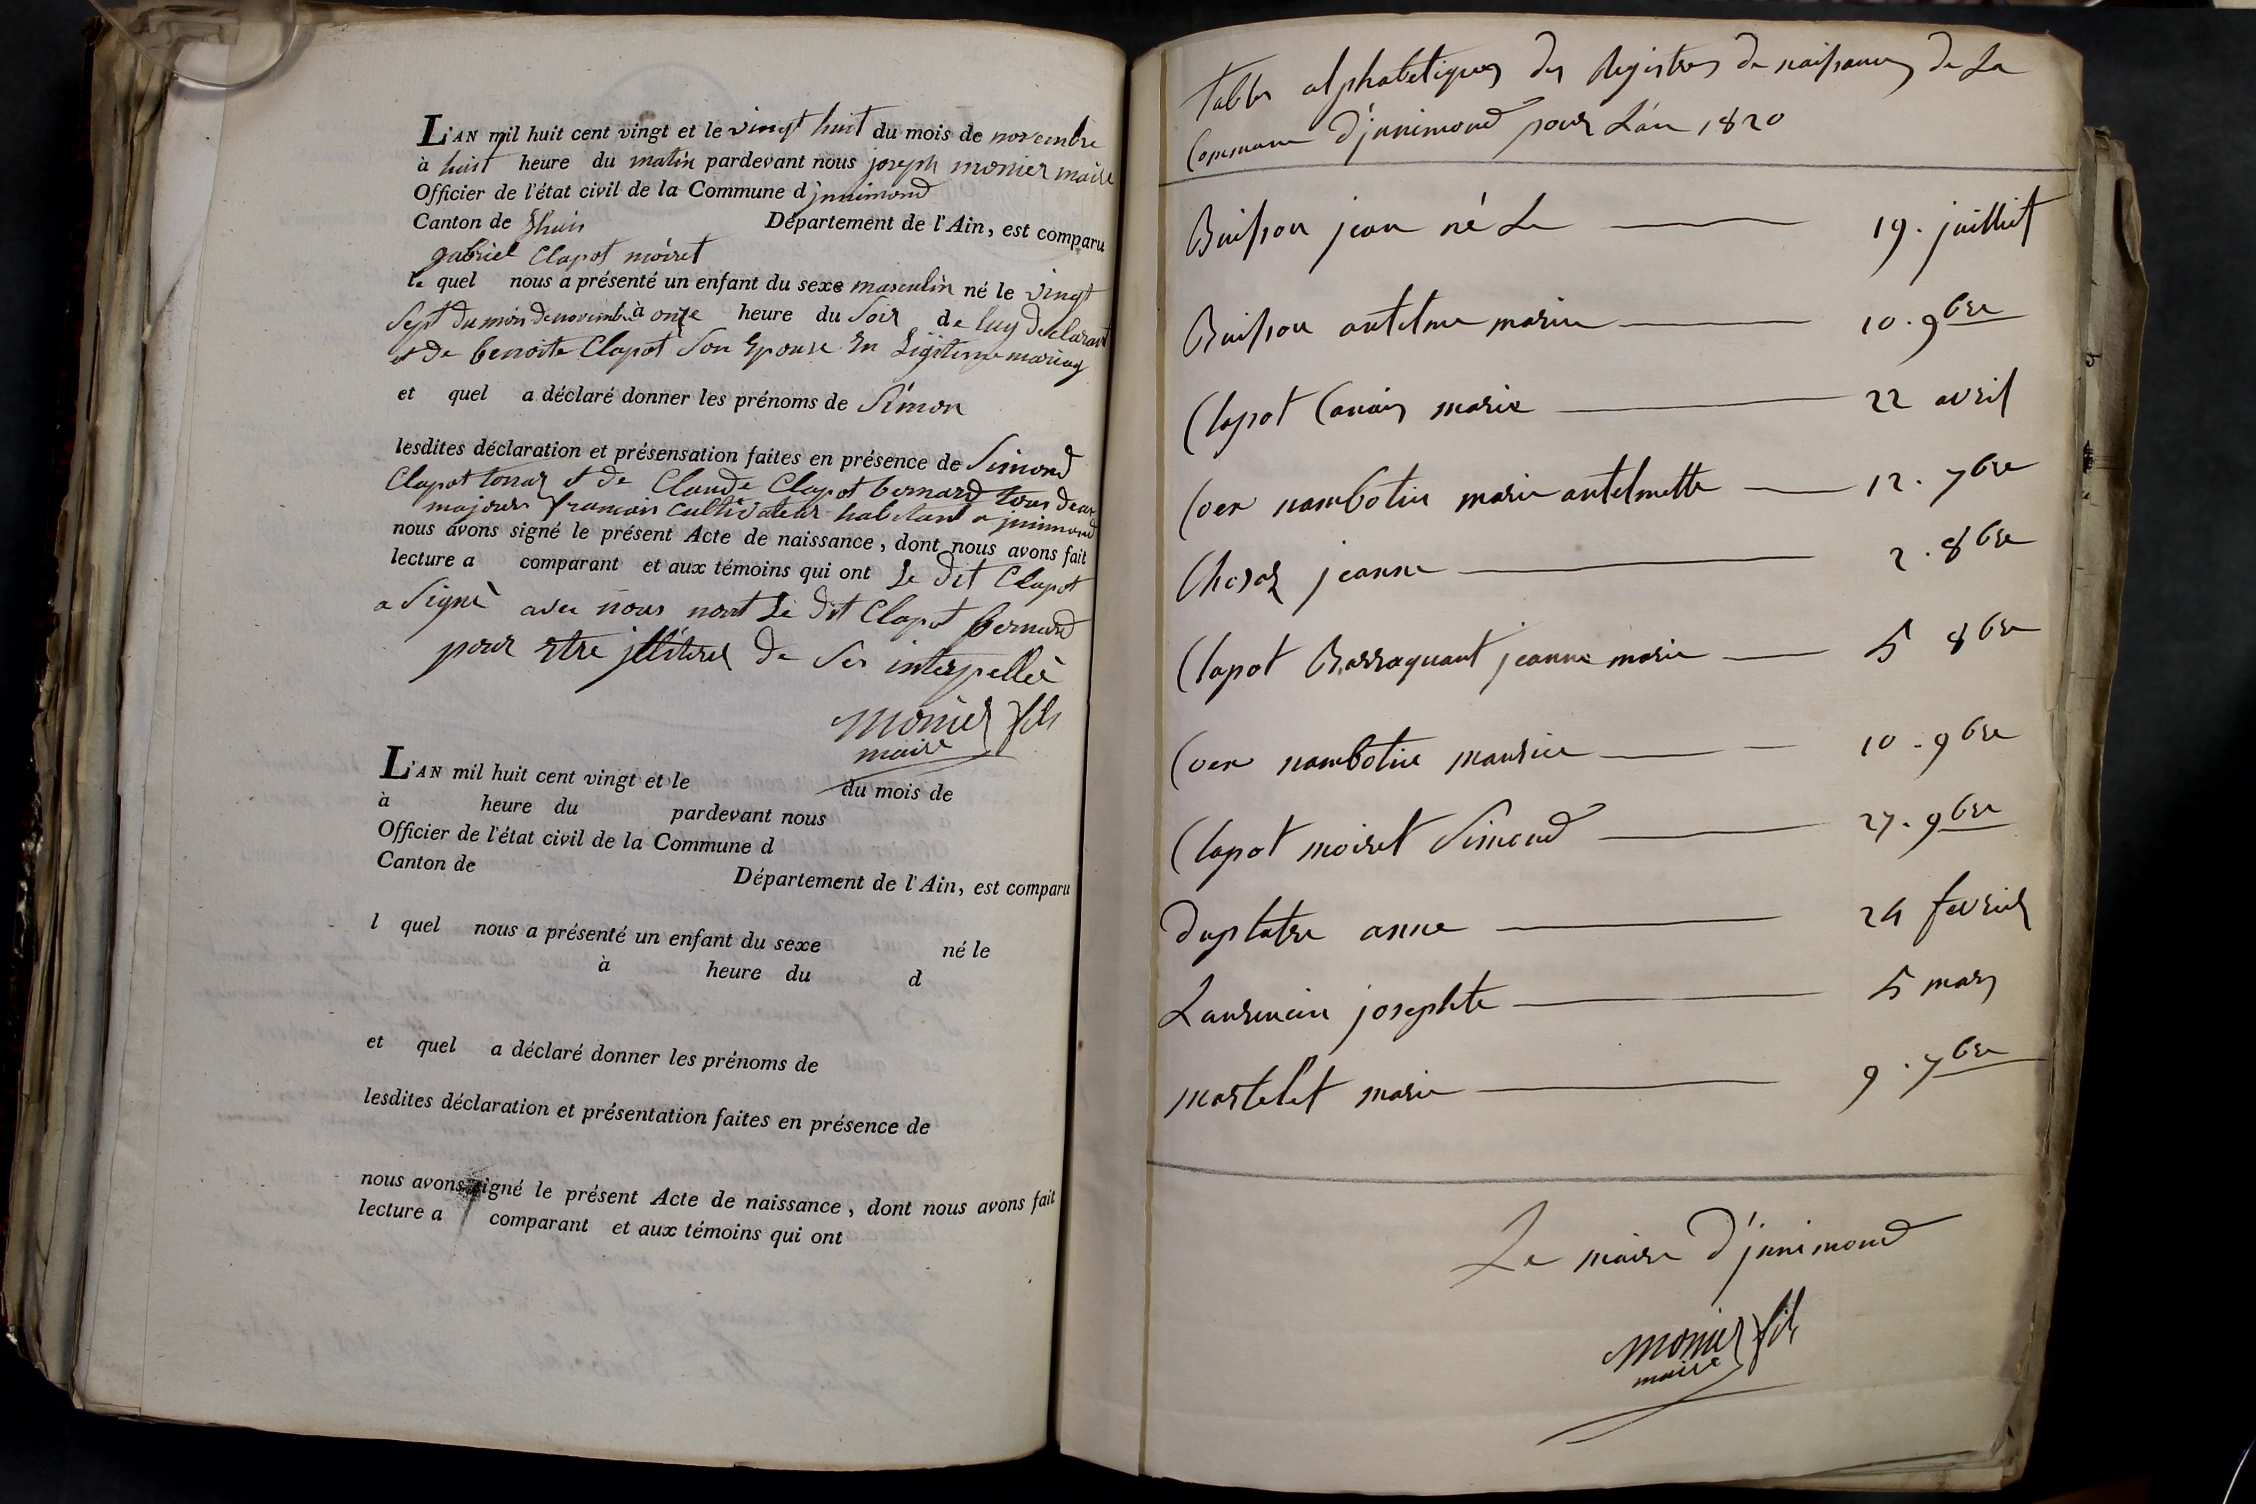 L'AN mil huit cent vingt et le vingt huit du mois de novembre
à huit heure du matin pardevant nous joseph monier maire
Officier de l'état civil de la Commune d'jnnimond
Canton de Lhuis Département de l'Ain, est comparu
gabriel Clapot moiret
le quel nous a présenté un enfant du sexe masculin né le vingt
Sept du mois de novembre à onze heure du Soir de luy declarant
et de benoite Clapot Son Epouse En Légitime mariag
et quel a déclaré donner les prénoms de Simon
lesdites déclaration et présensation faites en présence de Simond
Clapot tonaz et de Claude Clapot bernard tous deux
majeurs francois cultivateur habitant a jnnimond
nous avons signé le présent Acte de naissance, dont nous avons fait
lecture a comparant et aux témoins qui ont Le dit Clapot
a Signé avec nous nont Le dit Clapot bernard
pour etre jlliteré de Ser interpellé
monier fils
maire
L'AN mil huit cent vingt et le du mois de
à heure du pardevant nous
Officier de l'état civil de la Commune d
Canton de Département de l'Ain, est comparu
l quel nous a présenté un enfant du sexe né le
à heure du d
et quel a déclaré donner les prénoms de
lesdites déclaration et présentation faites en présence de
nous avons signé le présent Acte de naissance, dont nous avons fait
lecture a comparant et aux témoins qui ont
Tables alphabetiques des Registres de naissances de La
Commune d'jnnimond pour L'an 1820
Buisson jean né Le 19. juilliet
Buisson antelme marin 10. 9bre
Clapot Canais marie 22 avril
Coex nambotin marie antelmette 12. 7bre
Chosaz jeanne 2. 8bre
Clapot Barraquant jeanne marie 5 8bre
Coex nambotin maurice 10. 9bre
Clapot moiret Simond 27. 9bre
Duplatre anne 24 fevrier
Laurencin josephte 5 mars
martelet marie 9. 7bre
Le maire d'jnnimond
monier fils
maire